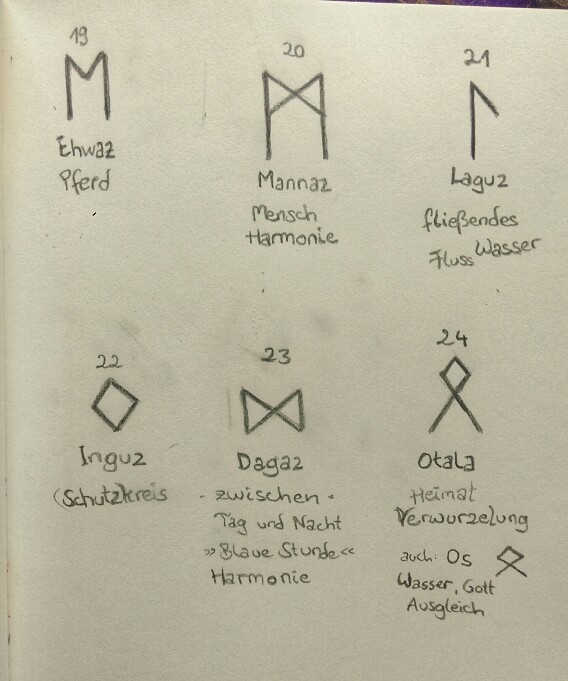 19
Ehwaz
Pferd
20
Mannaz
Mensch
Harmonie
21
Laguz
fließendes
Wasser
Fluss
22
Inguz
(Schutzkreis
23
Dagaz
- zwischen -
Tag und Nacht
»Blaue Stunde«
Harmonie
24
Otala
Heimat
Verwurzelung
auch: Os
Wasser, Gott
Ausgleich